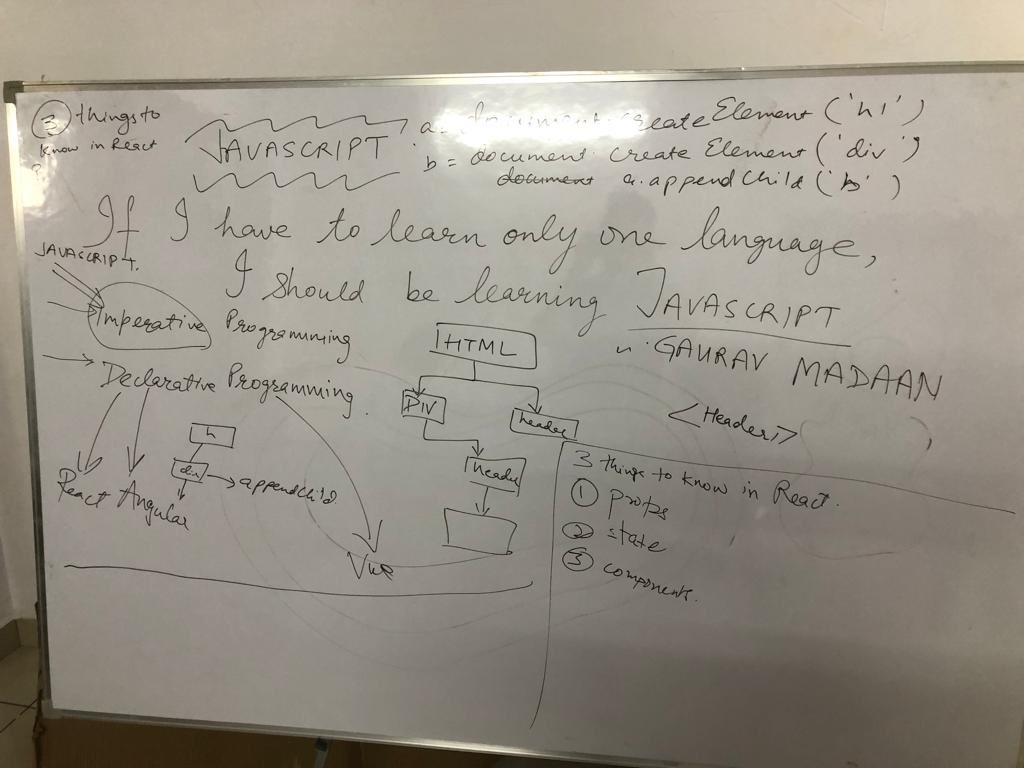 3 things to
know in React
JAVASCRIPT
a = document. createElement ('h1')
b = document. create Element ('div')
document a.appendChild ('b')
If I have to learn only one language,
I should be learning JAVASCRIPT
GAURAV MADAAN
JAVASCRIPT.
Imperative Programming
Declarative Programming.
React Angular
Vue
h
div
appendchild
HTML
DIV
header
header
<Header>
3 things to know in React.
1 props
2 state
3 components.